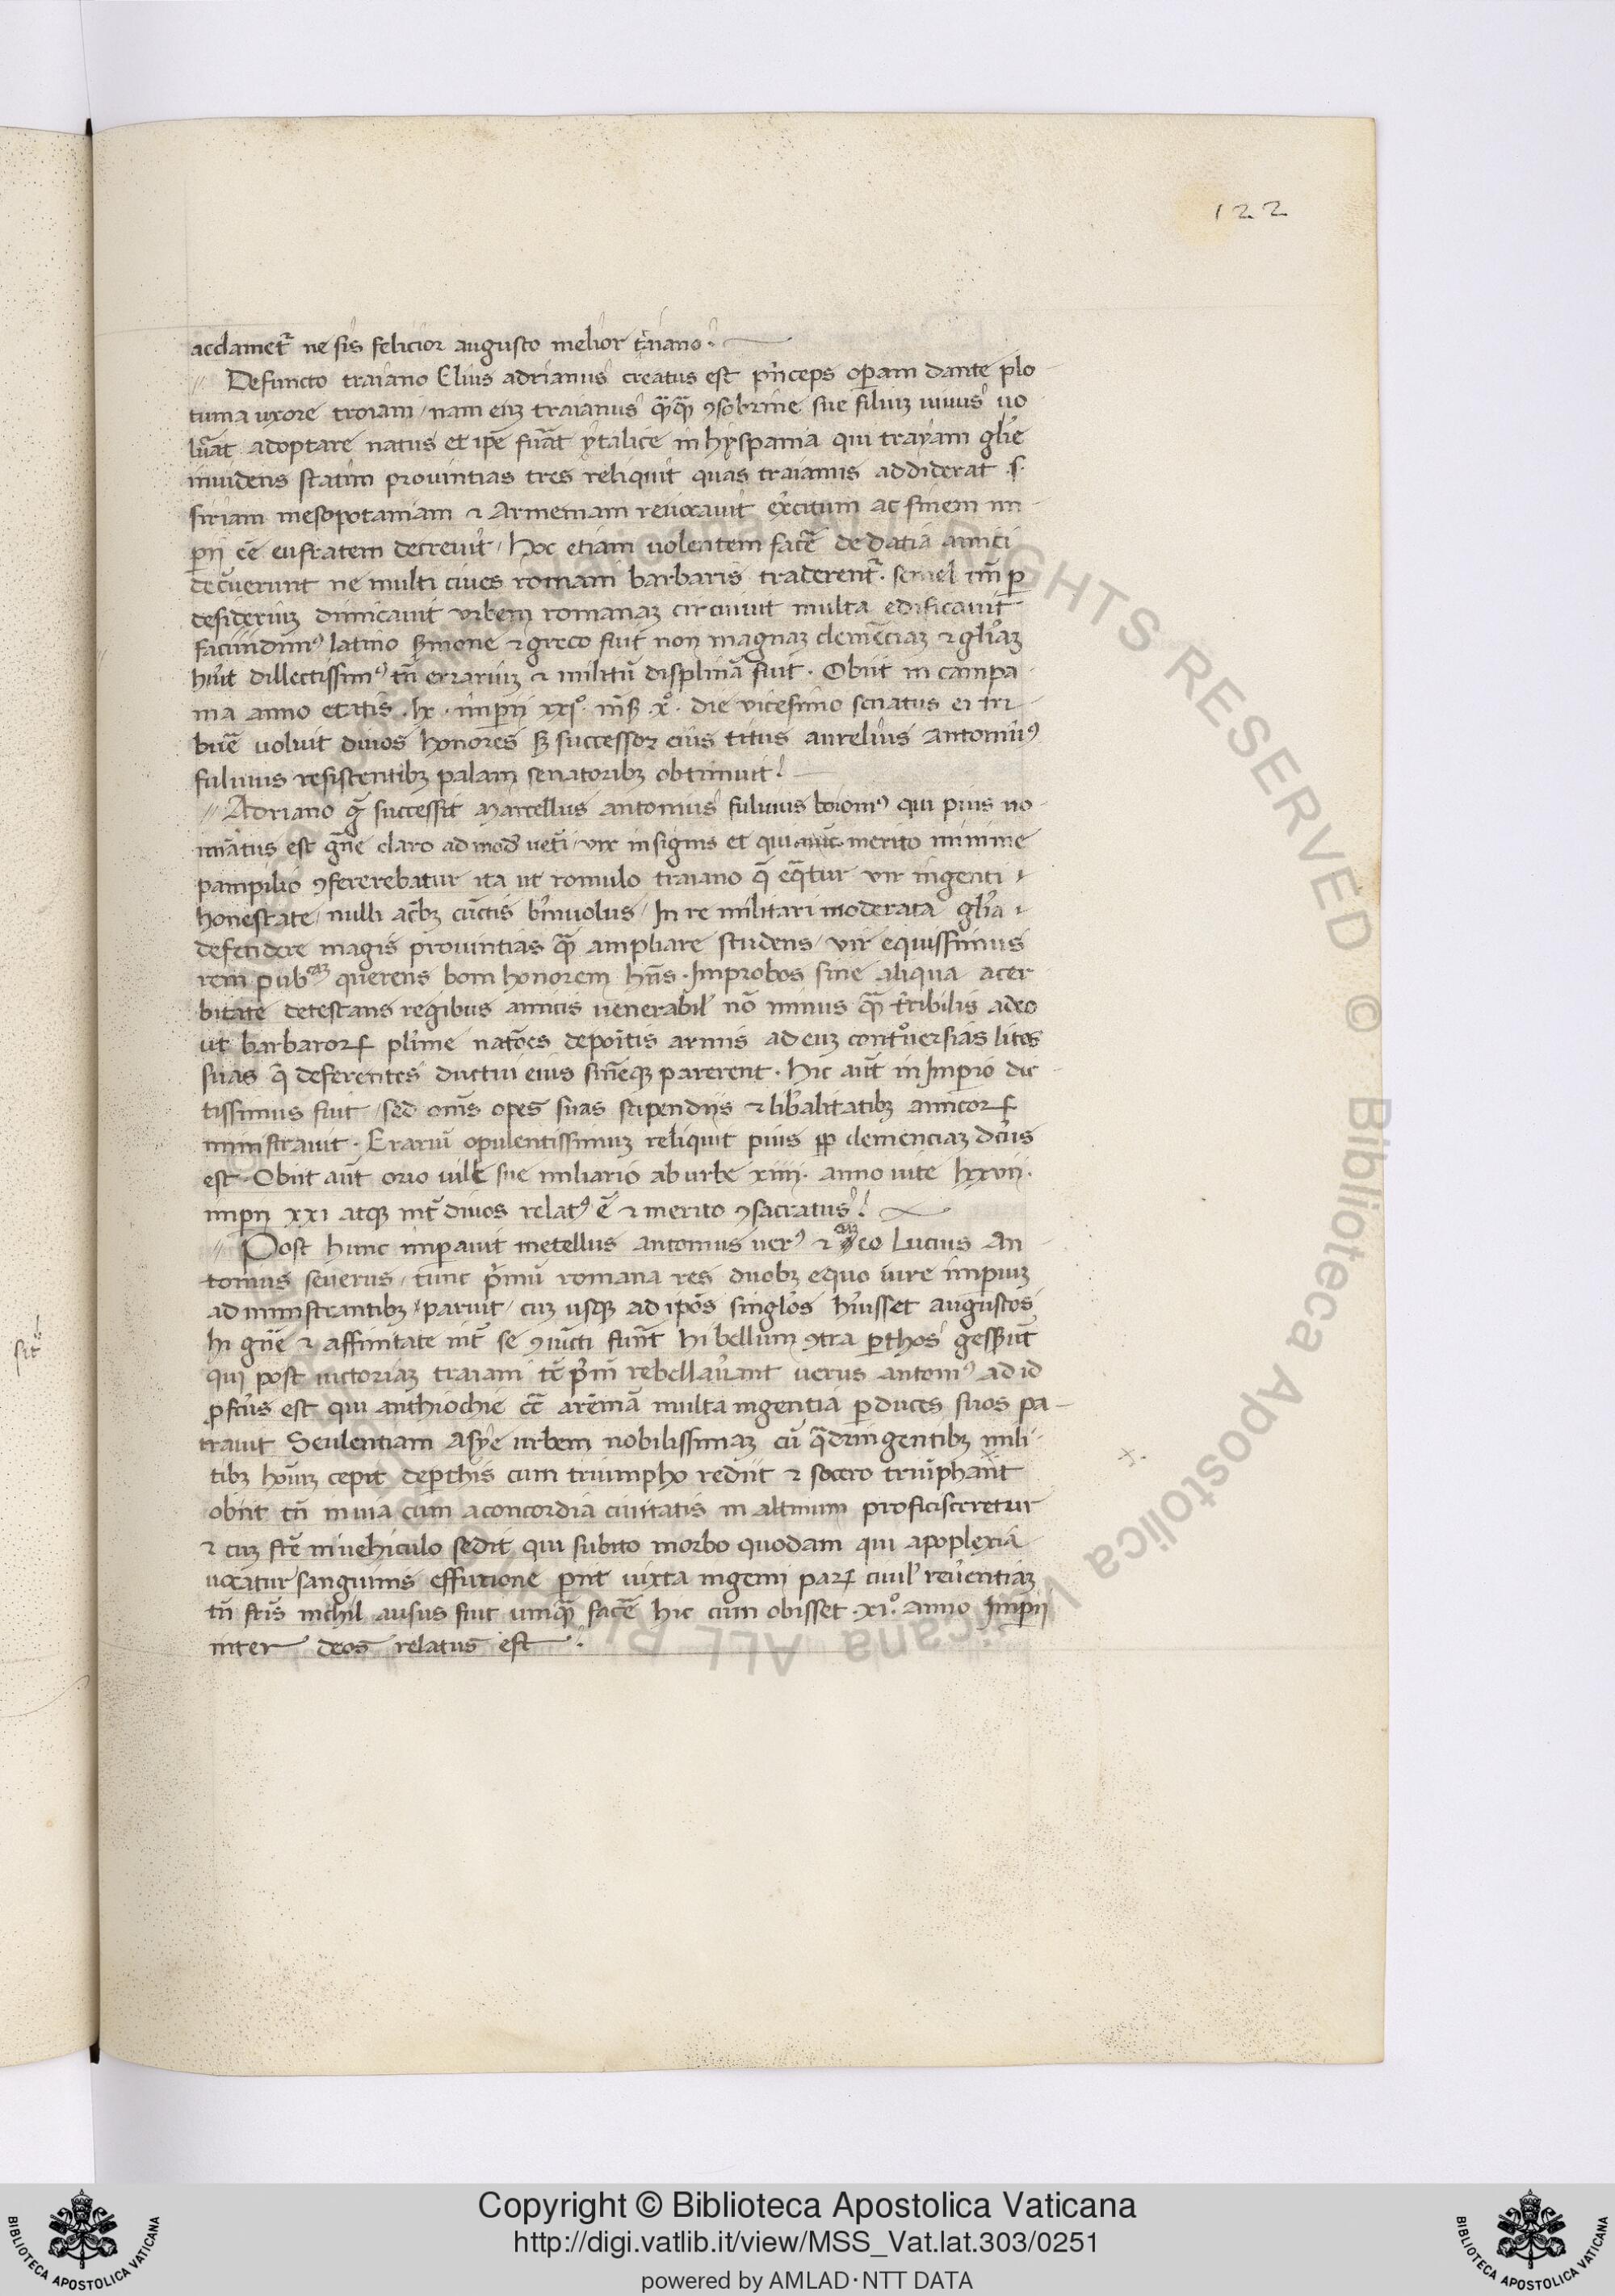 122
acclamet᷑ ne sis felicior augusto melior t̃iano.
Defuncto traiano Elius adrianus creatus est p̃nceps oꝑam dante plo
tuna uxore troiani / nam eũꝫ traianus q̃ꝙ̃ ꝯsobrine sue filiuꝫ uiuus uo
lũat adoptare natus et ip̃e fũat ytalice in hyspania qui trayani gl̃ie
inuidens statim prouintias tres reliquit quas traianus addiderat .s.
siriam mesopotamiam ⁊ Armeniam reuocauit ex̃citum ac finem im
ꝑii c̃e eufratem decreuit / Hoc etiam uolentem fac̃e de datia amici
decũerunt ne multi ciues romani barbaris traderent᷑. semel tm̃ ꝑ
desideriuꝫ dimicauit urbem romanaꝫ circuiuit multa edificauit
facundimꝰ latino s̃mone ⁊ greco fuit non magnaꝫ clemẽciaꝫ ⁊ gl̃iaꝫ
hũit dillectissimꝰ tñ errariuꝫ ⁊ militũ displinã fuit. Obiit in campa
nia anno etatis .lx. imꝑii xxiº. m̃ẜ .xº. die vicesimo senatus ei tri
buẽ uoluit diuos honores ẜ successor eius titus aurelius antoniꝰ
fuluius resistentibꝫ palam senatoribꝫ obtinuit.
Adriano g̃ successit Marcellus antonius fuluius boioniꝰ qui pius no
minatus est gñe claro ad mod̃ uet̃i / vir insignis et qui merito minime
pampilio ꝯfererebatur ita ut romulo traiano q̃ eq̃tur vir ingenti
honestate / nulli ac̃bꝫ cũctis bñiuolus / In re militari moderata gl̃ia
defendere magis prouintias q̃ᷓ ampliare studens / vir equissimus
rem pubᶜᵃꝫ querens boni honorem hñs. Improbos sine aliqua acer
bitate detestans regibus amicis venerabil̃ nõ minus q̃ᷓ t̃ribilis adeo
ut barbaroꝝ pl̃ime natões depoitis armis ad euꝫ contºuersias lites
suas q̃ deferentes ductui eius sm̃eqꝫ parerent. Hic aũt in Imꝑio dic
tissimus fuit / sed om̃s opes suas stipendiis ⁊ lib̃alitatibꝫ amicoꝝ
ministrauit. Erariũ opulentissimuꝫ reliquit pius ꝑp clemenciaꝫ dc̃us
est. Obiit aũt orio uille sue miliario ab urbe xiiii. anno uite lxxvii.
imꝑii xxi atqꝫ int̃ diuos relatꝰ ẽ ⁊ merito ꝯsacratus.
Post hunc imꝑauit metellus antonius uerꝰ ⁊ cuꝫ eo Lucius An
tonius seuerus / tunc p̃mũ romana res duobꝫ equo iure impiuꝫ
administrantibꝫ paruit / cuꝫ usqꝫ ad ip̃os singl̃os hũisset augustos
hi gñe ⁊ affinitate int̃ se ꝯiũcti fũnt hi bellum ꝯtra ꝑthos gesserũt
qui post uictoriaꝫ traiani tc̃ p̃m̃ rebellaũant uerus antoniꝰ ad id
ꝓfc̃us est qui anthiochie cc̃ arẽniã multa ingentia ꝑ duces suos pa
trauit Seulentiam Asye urbem nobilissimaꝫ cũ q̃dringentibꝫ mili
tibꝫ hoĩuꝫ cepit deꝑthis cum triumpho rediit ⁊ socero triũphauit
obiit tñ in uia cum a concordia ciuitatis in altinum proficisceretur
⁊ cuꝫ fr̃e in uehiculo sedit qui subito morbo quodam qui apoplexia
uocatur sanguinis effusione ꝑiit iuxta ingenii paꝝ ciuil̃ reũentiaꝫ
tñ fr̃is nichil ausus fuit unq̃ᷓ fac̃e hic cum obisset .xiº. anno Imꝑii
inter deos relatus est.
sit
Copyright © Biblioteca Apostolica Vaticana
http://digi.vatlib.it/view/MSS_Vat.lat.303/0251
powered by AMLAD·NTT DATA
BIBLIOTECA APOSTOLICA VATICANA
BIBLIOTECA APOSTOLICA VATICANA